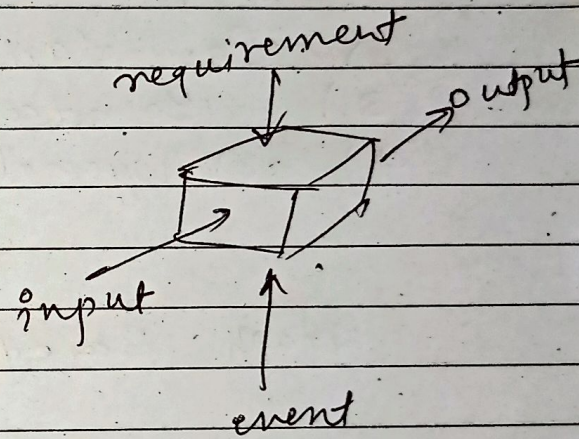 requirement
output
input
event